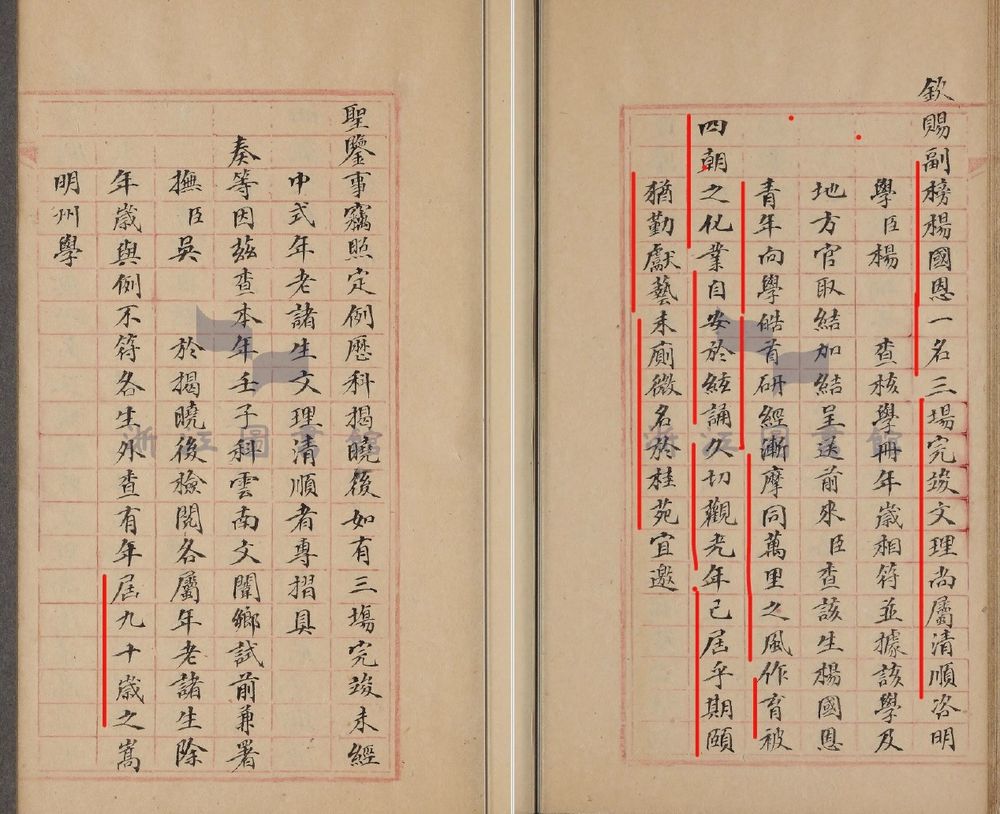 聖鑒事竊照定例歷科揭曉後如有三場完竣未經
中式年老諸生文理清順者專摺具
奏等因茲查本年壬子科雲南文闈鄉試前兼署
撫臣吳　於揭曉後檢閱各屬年老諸生除
年歲與例不符各生外查有年屆九十歲之嵩
明州學
浙江圖書館
欽賜副榜楊國恩一名三場完竣文理尚屬清順咨明
學臣楊　查核學冊年歲相符並據該學及
地方官取結加結呈送前來臣查該生楊國恩
青年向學皓首研經漸摩同萬里之風作育被
四朝之化業自安於絃誦久切觀光年已屆乎期頤
猶勤獻藝未廁微名於桂苑宜邀
浙江圖書館